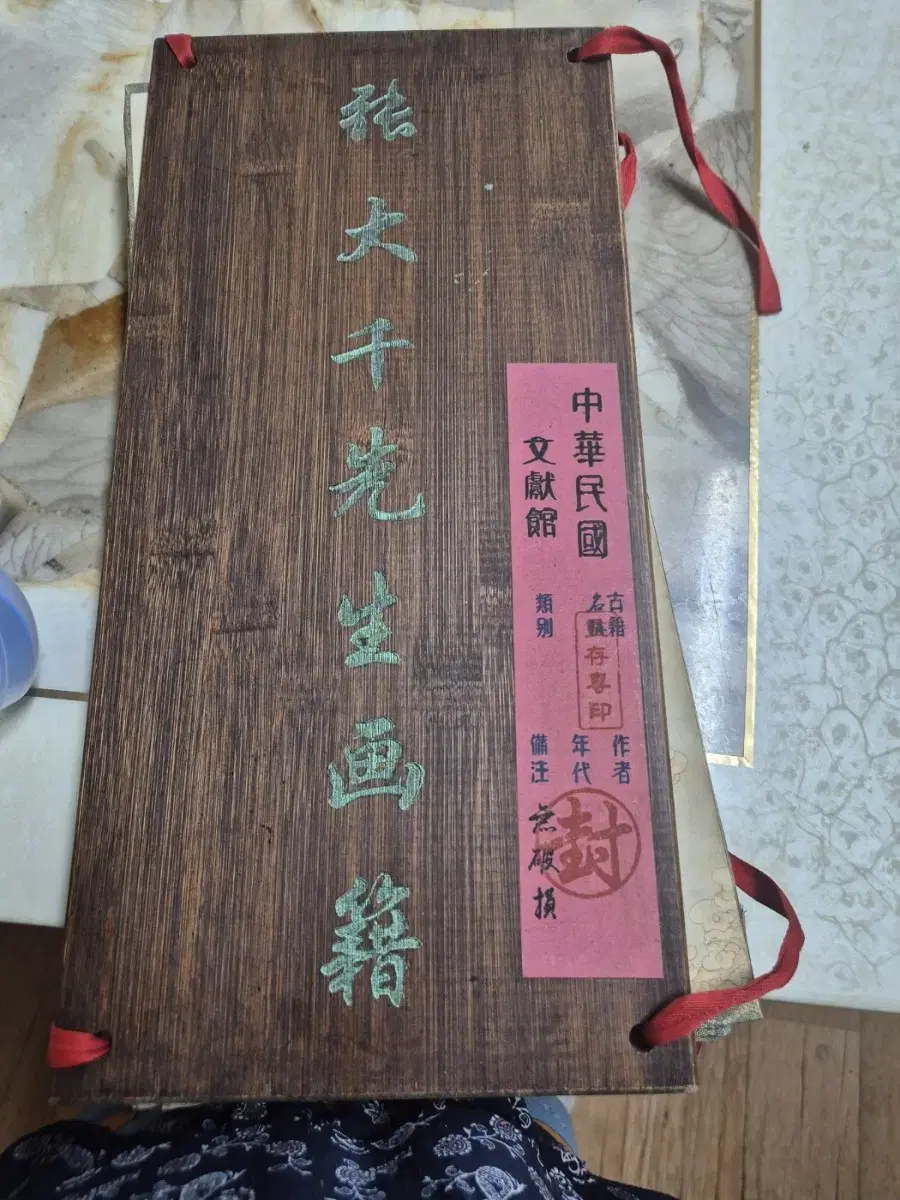 张大千先生画籍
中華民國
文獻館
古籍
名
存專印
類别
作者
年代
備注
封
無破損